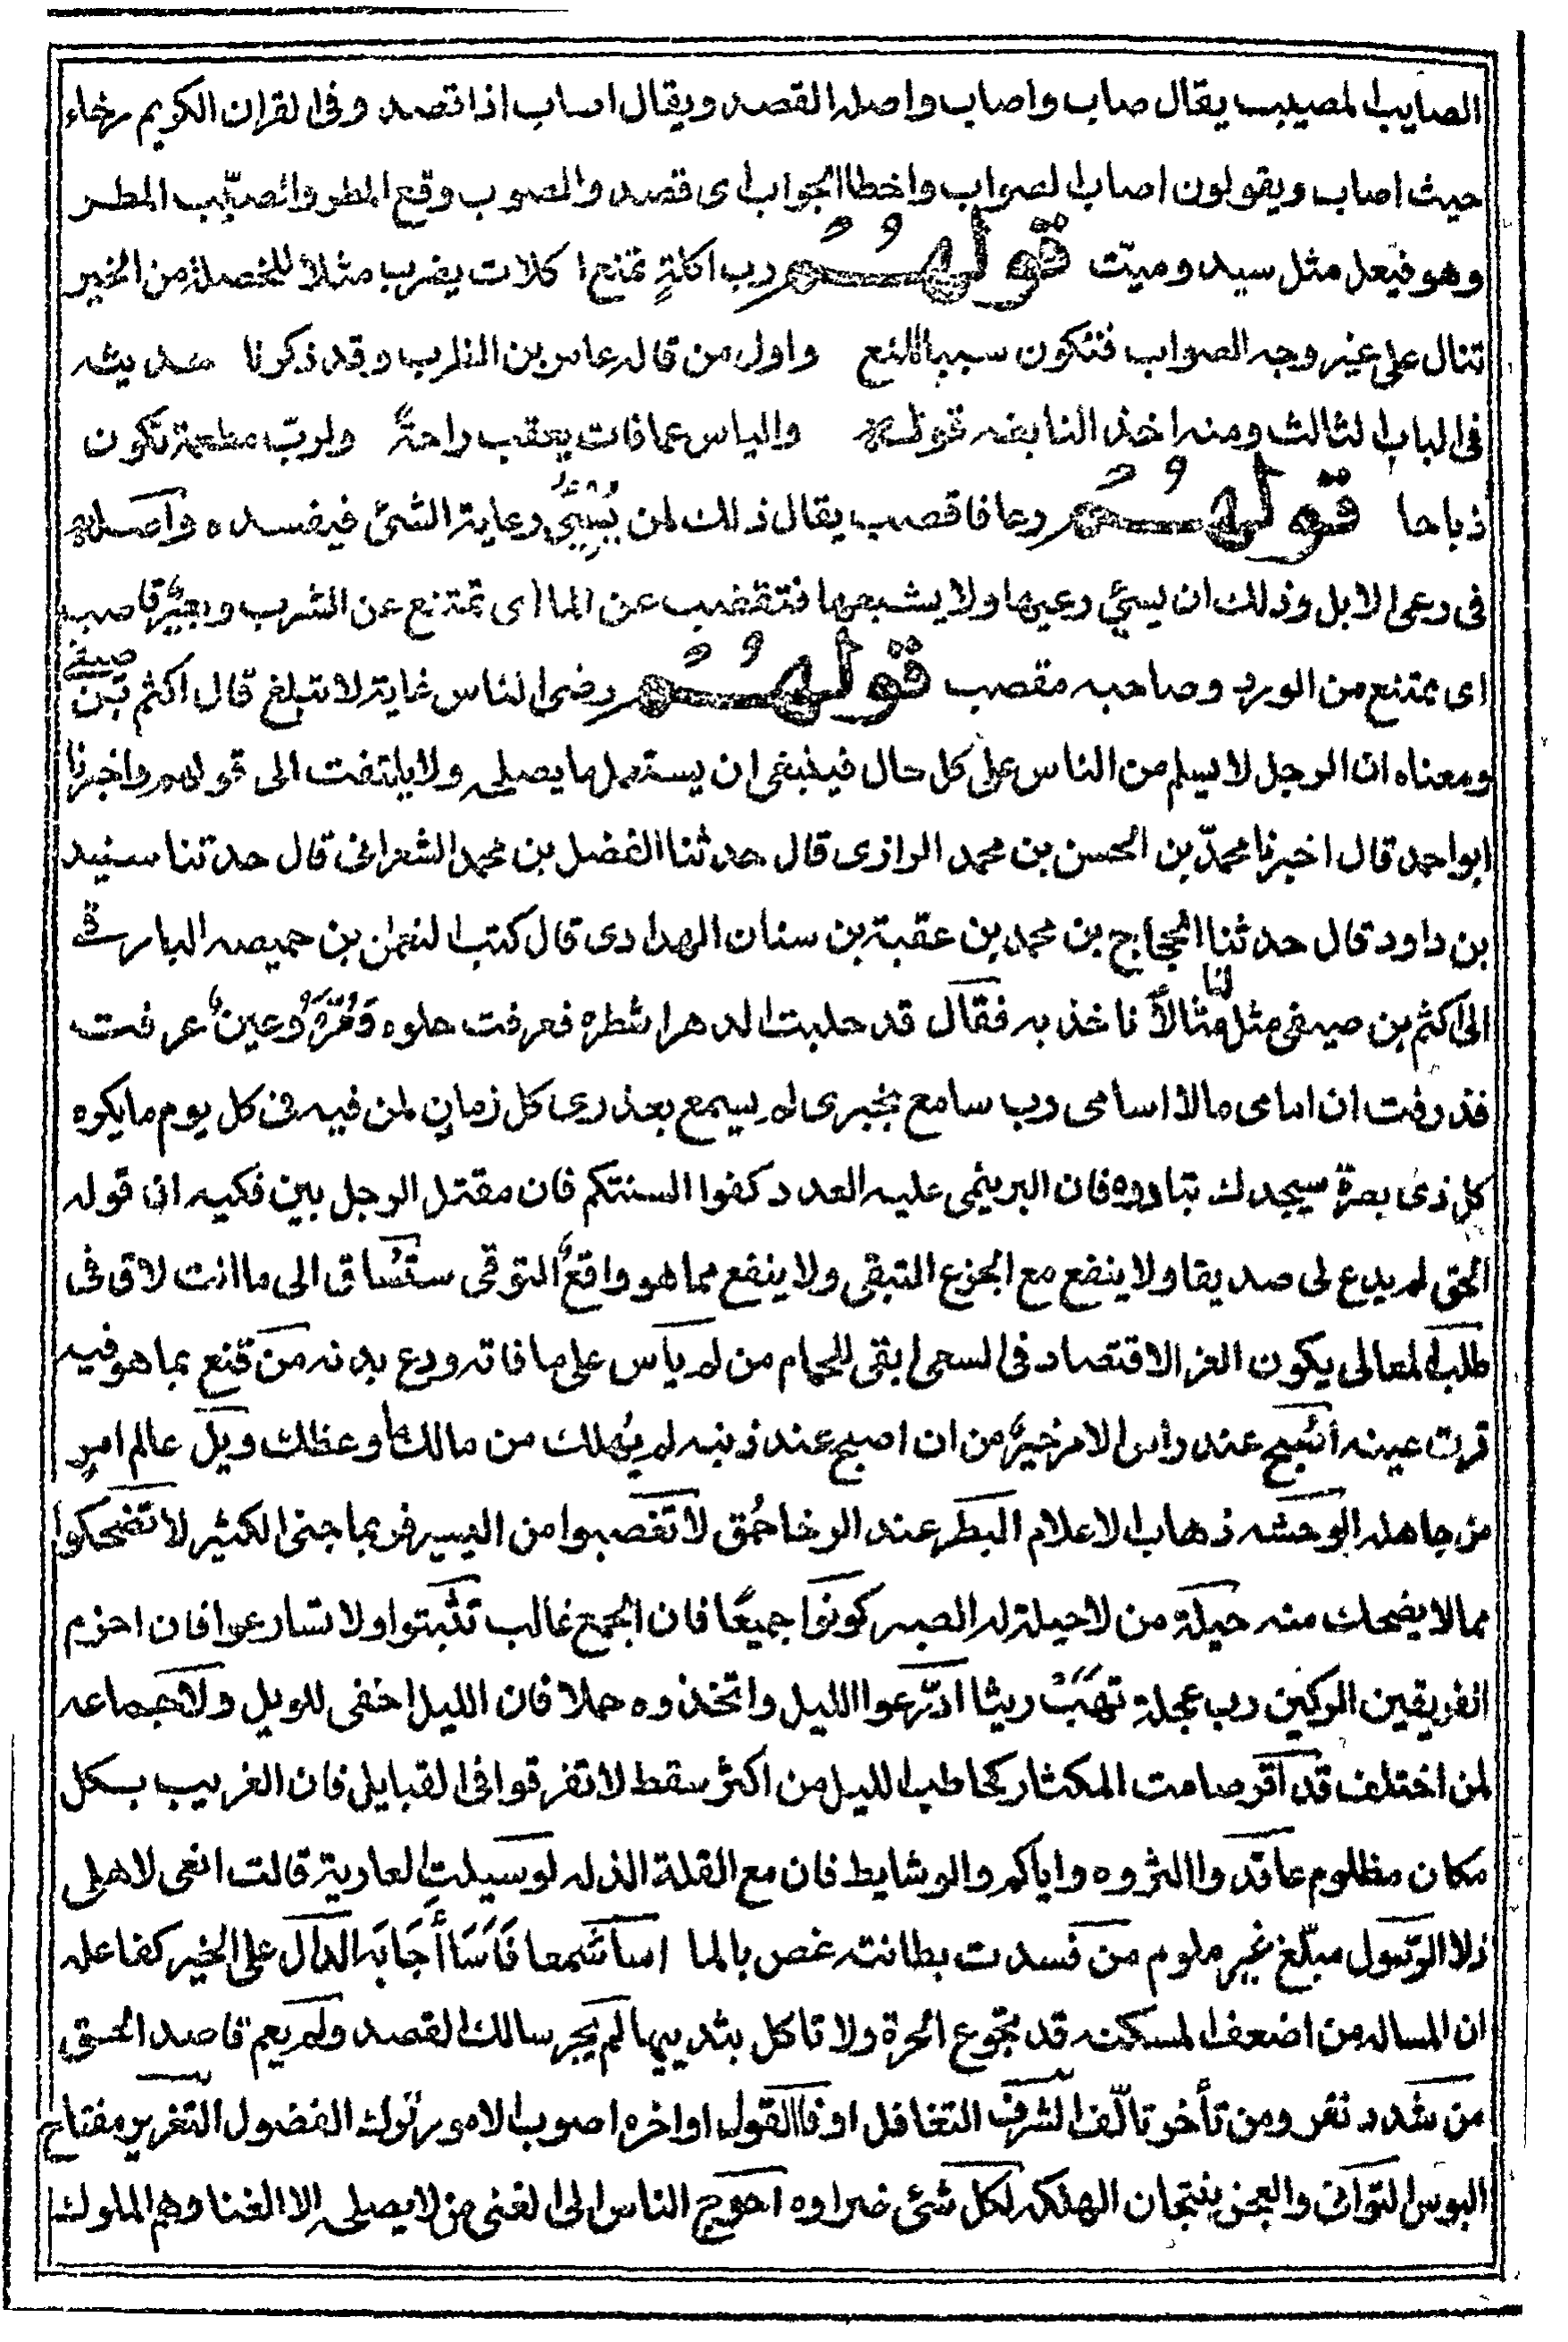 الصايب المصيب يقال صاب واصاب واصله القصد ويقال اصاب اذا قصد وفى القران الكريم رخاء
حيث اصاب ويقولون اصاب الصواب واخطا الجواب اى قصد والصوب وقع المطر والصيّب المطر
وهو فيعل مثل سيد وميّت قولهُم رب اكلةٍ تمنع اكلات يضرب مثلا للخصلة من الخير
تنال على غير وجه الصواب فتكون سببا للمنع واول من قاله عامر بن الظرب وقد ذكرنا حديثه
فى الباب الثالث ومنه اخذ النابغه قوله والياس عما فات يعقب راحةً ولربّ مطعمة تكون
ذباحا قولهُم رعا فاقصب يقال ذلك لمن يُسِيُّ رعاية الشئ فيفسده واصله
فى رعى الابل وذلك ان يسئ رعيها ولا يشبعها فتقضب عن الما اى تمتنع عن الشرب وبعيرٌ قاصب
اى ممتنع من الورد وصاحبه مقصب قولهُم رضى الناس غاية لا تبلغ قال اكثم بن صيفى
ومعناه ان الرجل لا يسلم من الناس على كل حال فينبغى ان يستعمل ما يصلحه ولا يلتفت الى قولهم واخبرنا
ابو احمد قال اخبرنا محمدّ بن الحسن بن محمد الرازى قال حدثنا الفضل بن محمد الشعرانى قال حدثنا سنيد
بن داود قال حدثنا الحجاج بن محمد بن عقبة بن سنان الهدادى قال كتب النعمٰن بن حميصه البارقى
الى اكثم بن صيفى مثل لنا مثالاً ناخذ به فقال قد حلبت الدهر اشطره فعرفت حلوه وَمُرَّهُ وعين عرفت
فذرفت ان امامى مالا اسامى رب سامع بخبرى لم يسمع بعذرى كل زمان لمن فيه فى كل يوم ما يكره
كل ذى بصرة سيجدك تباروه فان البر ينمى عليه العدد كفوا السنتكم فان مقتل الرجل بين فكيه ان قوله
الحق لم يدع لى صديقا ولا ينفع مع الجزع التبقى ولا ينفع مما هو واقعٌ التوقى ستُساق الى ما انت لاق فى
طلب المعالى يكون العز الاقتصاد فى السعى ابقى للجمام من لم يأس على ما فاته ودع بدنه من قنع بما هو فيه
قرت عينه أَصبح عند راس الامر خيرٌ من ان اصبح عند ذنبه لم يُهلك من مالك ما وعظك ويل عالم امرٍ
من جاهله الوحشه ذهاب الاعلام البطر عند الرخا حُمق لا تغضبوا من اليسير فربما جنى الكثير لا تضحكوا
مما لا يضحك منه حيلة من لا حيلة له الصبر كونوا جميعًا فان الجمع غالب تثبتوا ولا تسارعوا فان احزم
الفريقين الركين رب عجلةٍ تهَبُ ريثا ادّرعوا الليل واتخذوه جملا فان الليل اخفى للويل ولا جماعه
لمن اختلف قد اقر صامت المكثار كحاطب الليل من اكثر سقط لا تفرقوا فى القبايل فان الغريب بكل
مكان مظلوم عاقدوا الثروه واياكم والوشايط فان مع القلة الذله لو سيلتِ العارية قالت انعى لاهلى
ذلا الرّسول مبلّغ غير ملوم من فسدت بطانته غص بالما اسا سَمعا فَاَسَا أَجَابَه الدال على الخير كفاعله
ان المساله من اضعف المسكنه قد تجوع الحرة ولا تاكل بثدييها لم يجر سالك القصد ولم يعم قاصد الحق
من شدد نفر ومن تأخر تالّف الشرف التغافل اوفا القول اواخره اصوب الامور ترك الفضول التغرير مفتاح
البوس التوانى والعجز ينتجان الهلكه لكل شئ ضراوه احوج الناس الى الغنى من لا يصلحه الا الغنا وهم الملوك